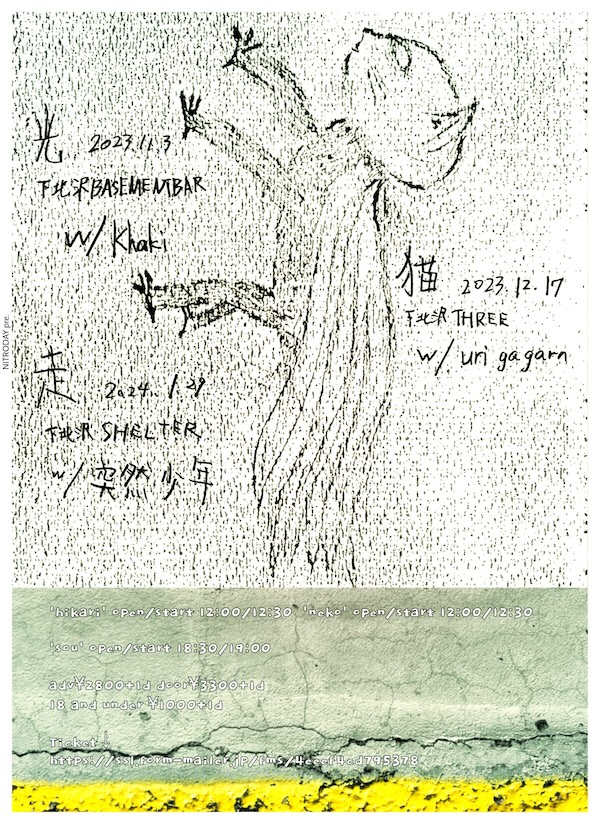 光 2023.11.3
下北沢BASEMENTBAR
w/ Khaki
猫 2023.12.17
下北沢THREE
w/ uri gagarn
走 2024.1.29
下北沢 SHELTER
w/ 突然少年
NITRODAY pre.
'hikari' open/start 12:00/12:30 'neko' open/start 12:00/12:30
'sou' open/start 18:30/19:00
adv¥2800+1d door¥3300+1d
18 and under ¥1000+1d
Ticket↓
https://ssl.form-mailer.jp/fms/4eeef4cd795378